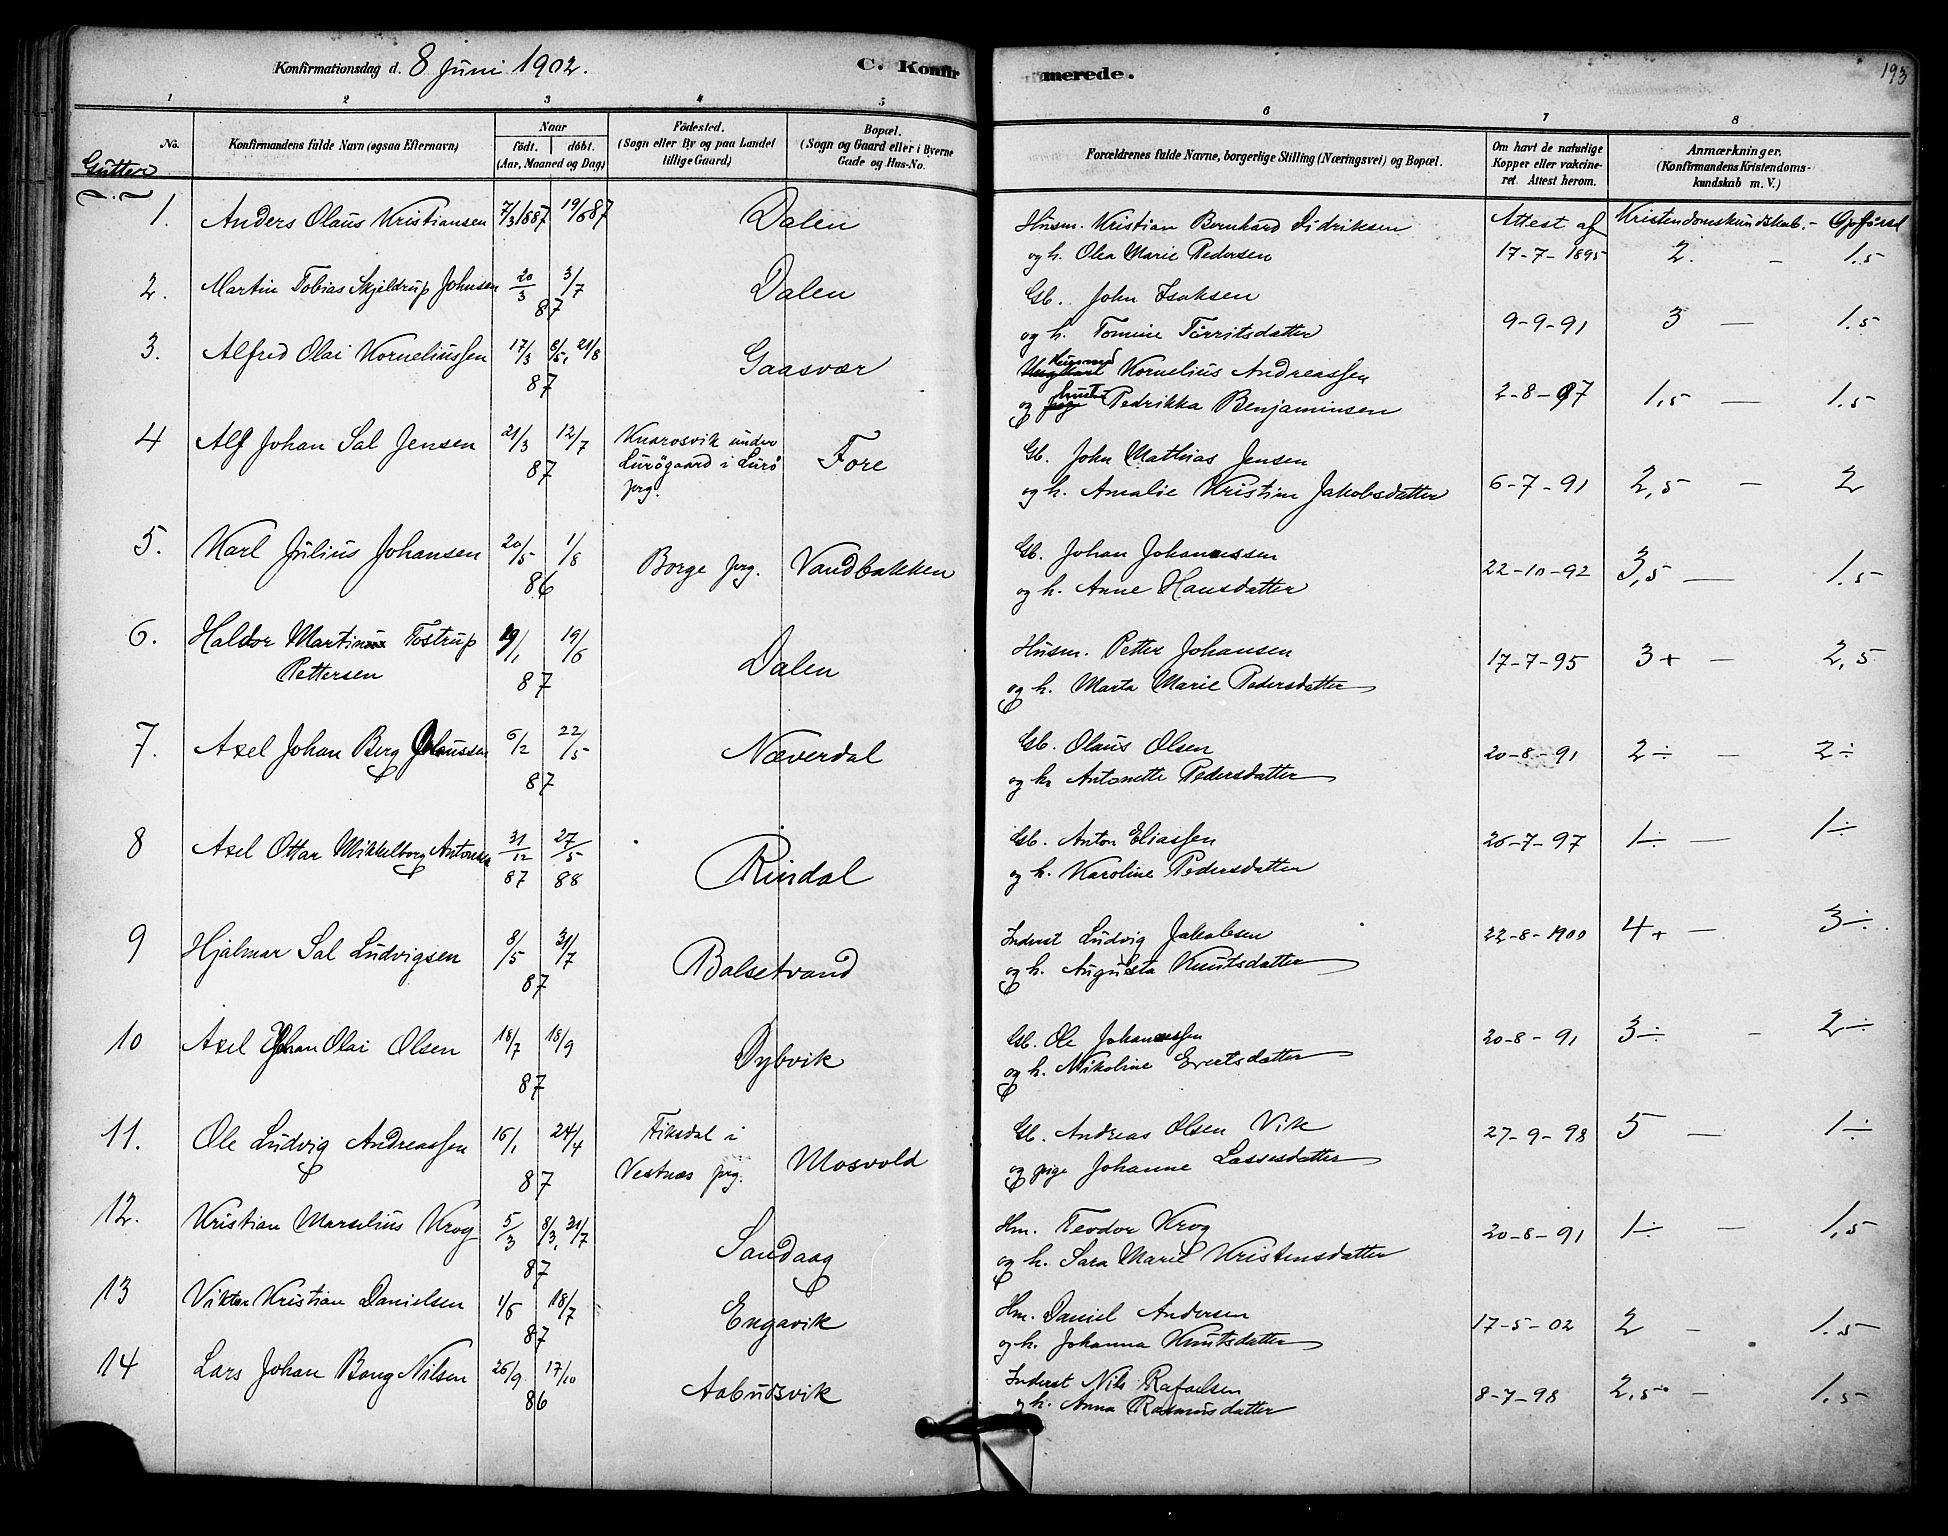 Konfirmationsdag d. 8 Juni 1902.
C. Konfirmerede.
193
1 2 3 4 5 6 7 8
No.
Konfirmandens fulde Navn (ogsaa Efternavn)
Naar
födt. döbt.
(Aar, Maaned og Dag)
Födested.
(Sogn eller By og paa Landet
tillige Gaard)
Bopæl.
(Sogn og Gaard eller i Byerne
Gade og Hus-No.
Forældrenes fulde Navne, borgerlige Stilling (Næringsvei) og Bopæl.
Om havt de naturlige
Kopper eller vakcine-
ret. Attest herom.
Anmærkninger.
(Konfirmandens Kristendoms-
kundskab m. V.)
Gutter
1. Anders Olaus Kristiansen 7/3 1887 19/6 87 Dalen Husm. Kristian Bernhard Didriksen Attest af Kristendomskundskab. - Opförsel
og h. Olea Marie Pedersen 17-7-1895 2. - 1.5
2. Martin Tobias Skjeldrup Johnsen 20/3 3/7 Dalen Gb. John Isaksen
87 og h. Tomine Törritsdatter 9-9-91 3 - 1.5
3. Alfred Olai Korneliussen 17/3 8/5, 21/8 Gaasvær Husmd Kornelius Andreassen
87 og hustru Pedrikka Benjaminsen 2-8-97 1,5 - 1.5
4 Alf Johan Sal Jensen 21/3 12/7 Kvarosvik under Fore Gb. John Mathias Jensen
87 Lurögaard i Lurö og h. Amalie Kristine Jakobsdatter 6-7-91 2,5 - 2
prg.
5. Karl Julius Johansen 20/5 1/8 Borge prg. Vandbakken Gb. Johan Johanssen
86 og h. Anne Hansdatter 22-10-92 3,5 - 1.5
6. Haldor Martin Tostrup 19/1 19/6 Dalen Husm. Petter Johansen 17-7-95 3+ - 2,5
Pettersen 87 og h. Marta Marie Pedersdatter
7. Axel Johan Berg Olaussen 6/2 22/5 Næverdal Gb. Olaus Olsen 20-8-91 2÷ - 2÷
87 og h. Antonette Pedersdatter
8 Axel Ottar Mikkelborg Antonsen 31/12 27/5 Rindal Gb. Anton Eliassen 26-7-97 1÷ - 1÷
87 88 og h. Karoline Pedersdatter
9 Hjalmar Sal Ludvigsen 8/5 31/7 Balsetvand Inderst Ludvig Jakobsen 22-8-1900 4+ - 3÷
87 og h. Augusta Knutsdatter
10 Axel Johan Olai Olsen 18/7 18/9 Dybvik Gb. Ole Johanssen 20-8-91 3÷ - 2÷
87 og h. Nikoline Evertsdatter
11. Ole Ludvig Andreassen 16/1 24/4 Fiksdal i Mosvold Gb. Andreas Olsen Vik 27-9-98 5 - 1÷
87 Vestnæs prg. og pige Johanne Lassesdatter
12. Kristian Marselius Krog 5/3 8/3, 31/7 Sandaag Hm. Teodor Krog 20-8-91 1÷ - 1,5
87 og h. Sara Marie Kristensdatter
13 Viktor Kristian Danielsen 1/6 18/7 Engavik Hm. Daniel Andersen 17-5-02 2 - 1.5
87 og h. Johanna Knutsdatter
14 Lars Johan Bang Nilsen 26/9 17/10 Aabudsvik Inderst Nils Rafaelsen 8-7-98 2,5 - 1.5
86 og h. Anna Rasmusdatter